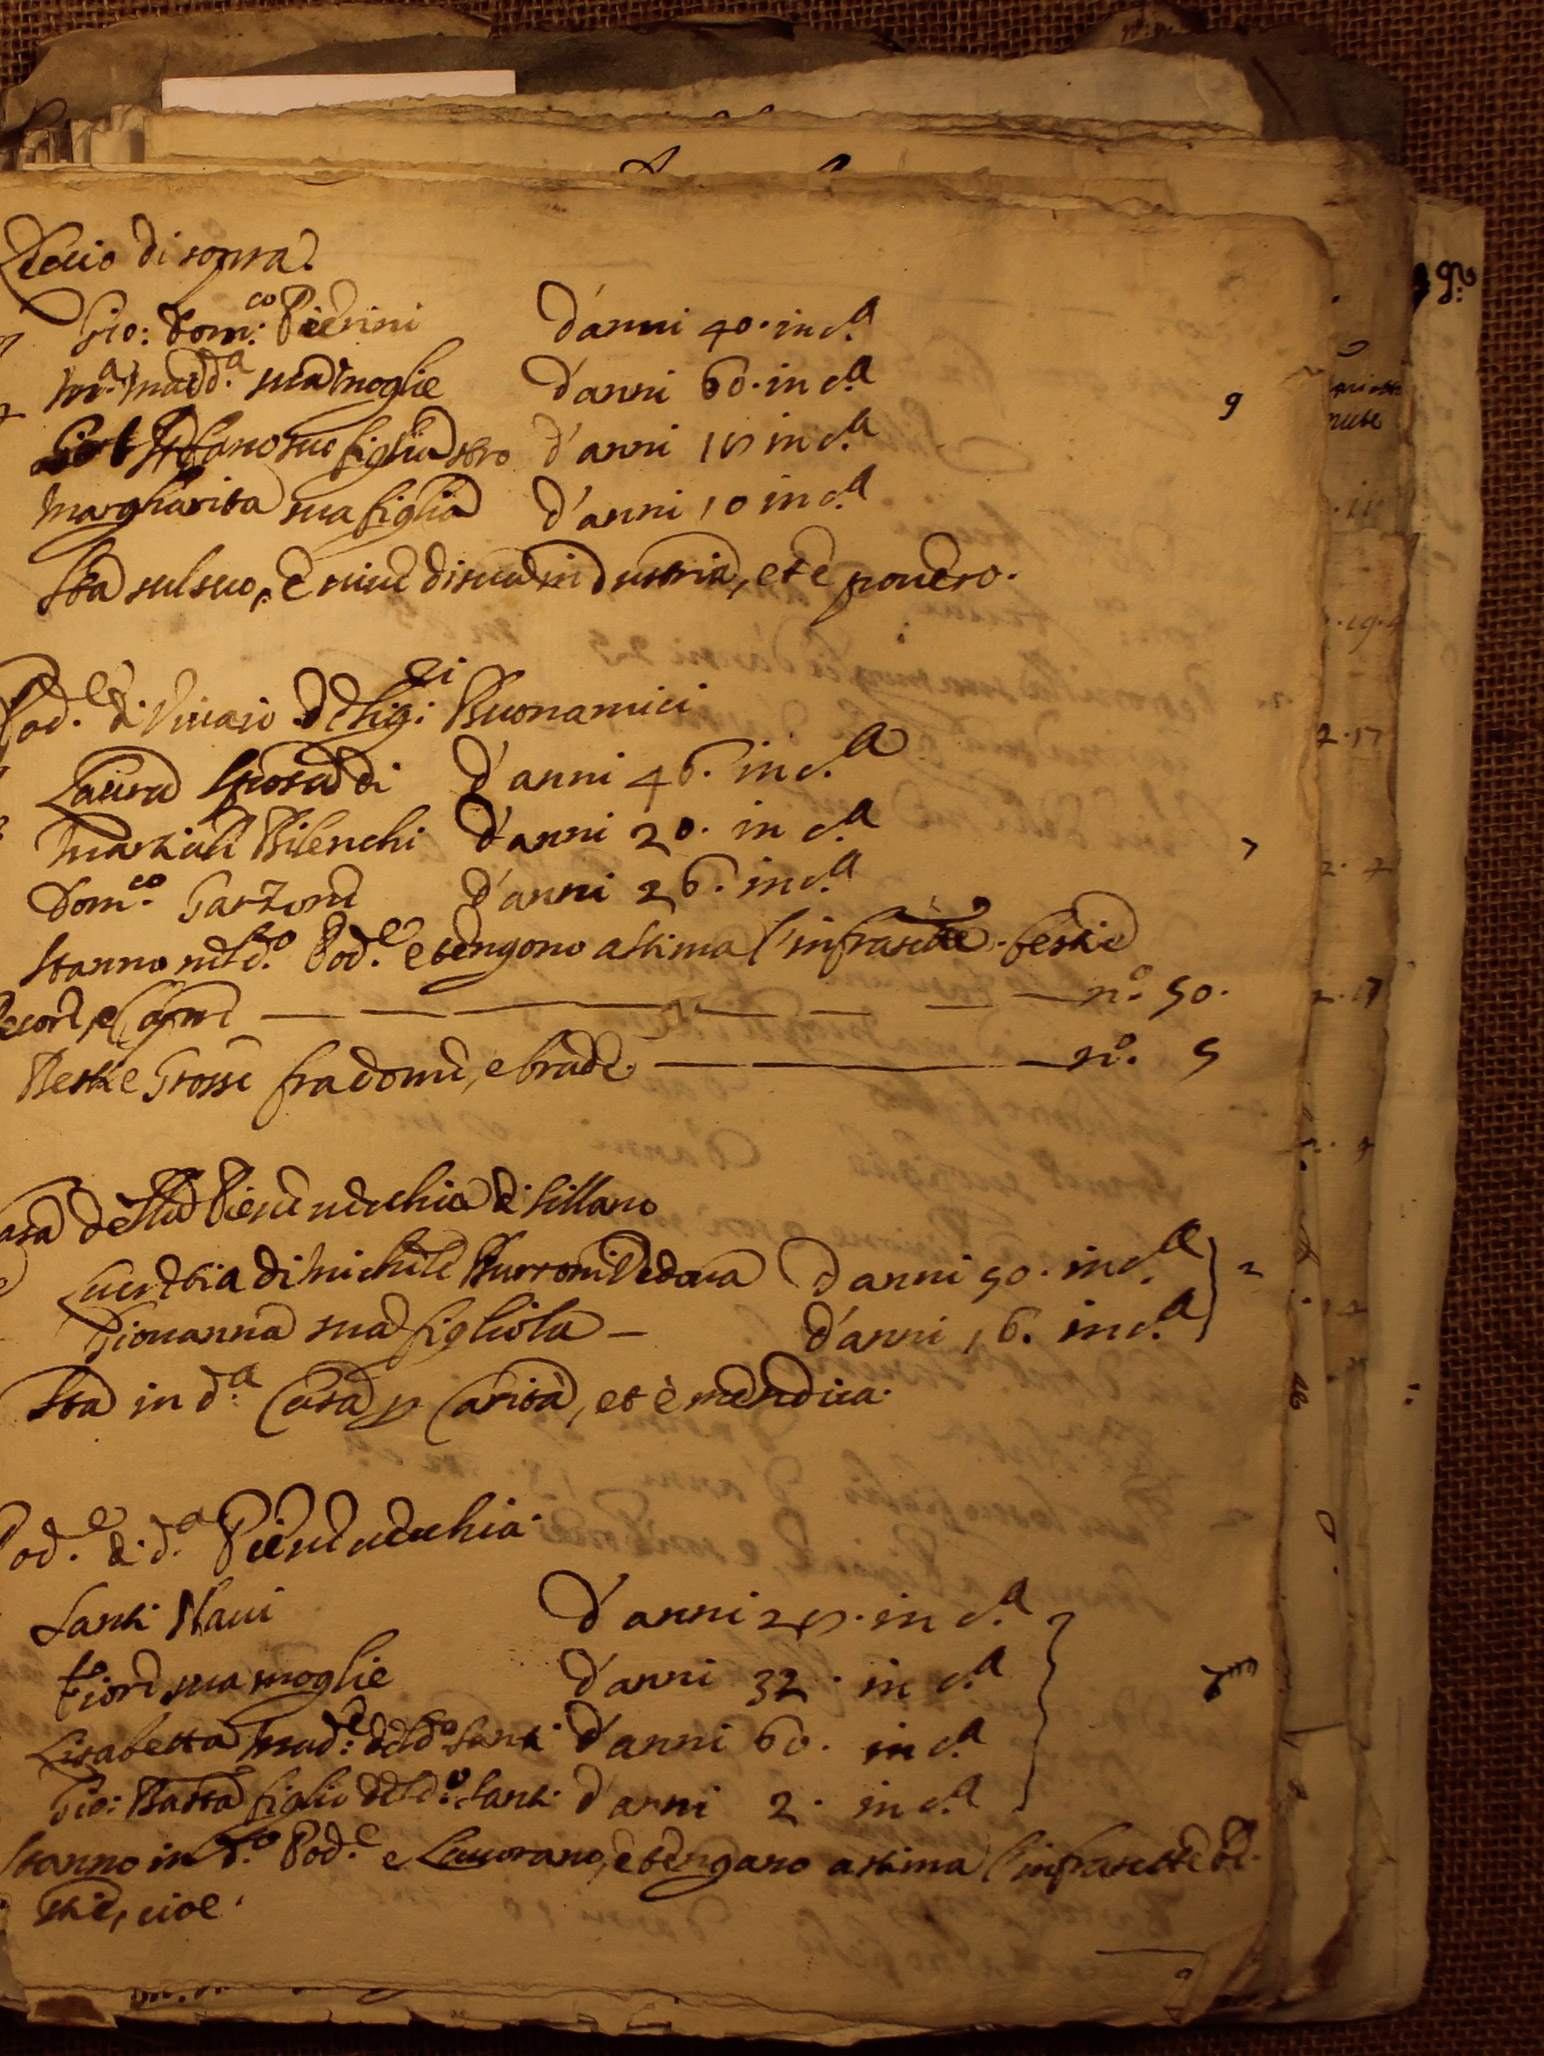 Leccio di sopra
Gio: Dom:co Pierini d'anni 40. in c.a
M.a Madd.a sua moglie d'anni 60. in c.a
Stefano suo figliastro d'anni in c.a
Margharita sua figlia d'anni 10 in c.a
Sta sul suo, e viue di sua industria, et è pouero.
9
Pod.e di Viuaio de Sig:ri Buonamici
Laura sposa di d'anni 46. in c.a
Martiali Bilenchi d'anni 20. in c.a
Dom.co Garzone d'anni 26. in c.a
Stanno nel d.o Pod.e e tengono a stima l'infrascritte bestie
Pecore, e Capre n.o 50.
Bestie Grosse fra dome, e brade n.o 5
Casa della Pieue uecchia di Sillano
Lucretia di Michele Burroni Vedoua d'anni 50. in c.a
2
Giouanna sua figliola d'anni 16. in c.a
Sta in d.a Casa p Carità, et è mendica.
Pod.e di d.a Pieue uecchia.
Santi Naui d'anni in c.a
Fiore sua moglie d'anni 32. in c.a
Lisabetta Mad:e del d.o Santi d'anni 60. in c.a
Gio: Batta figlio del d.o Santi d'anni 2. in c.a
Stanno in d.o Pod.e e Lauorano, e tengano a stima l'infrascritte be-
stie, cioe.